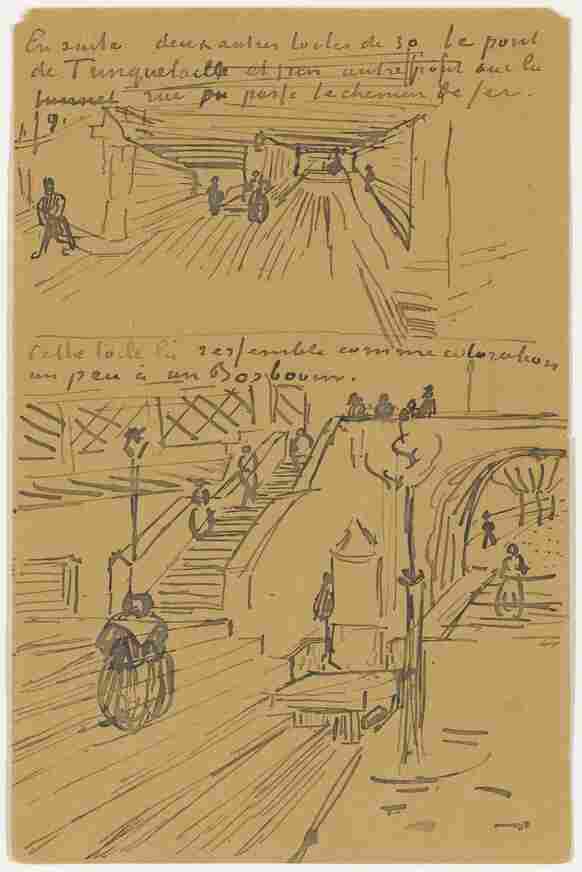 Ensuite deux autres toiles de 30 le pont
de Trinquetaille et puis un autre pont sur la
rue ou passe le chemin de fer.
Cette toile là ressemble comme coloration
un peu à un Bosboom.